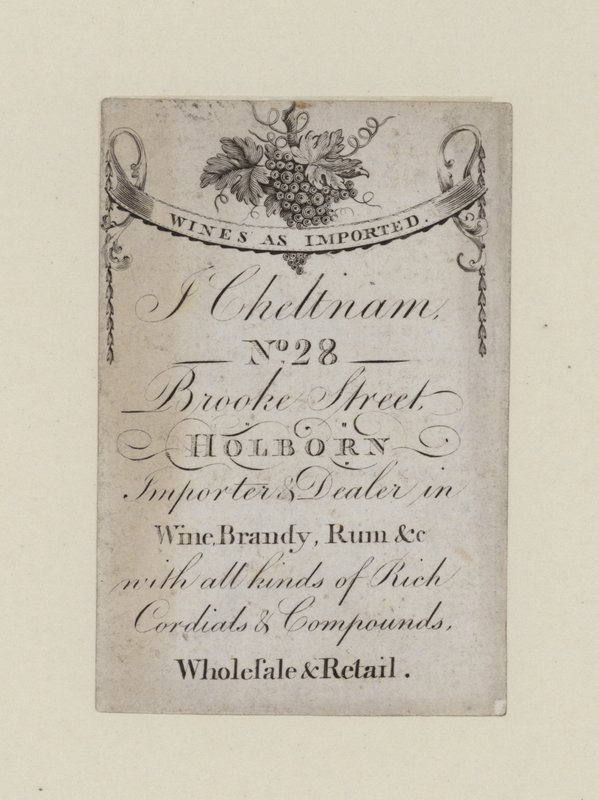 WINES AS IMPORTED.
J Cheltnam,
No. 28
Brooke Street,
HOLBORN
Importer & Dealer in
Wine, Brandy, Rum &c
with all kinds of Rich
Cordials & Compounds,
Wholeſale & Retail.